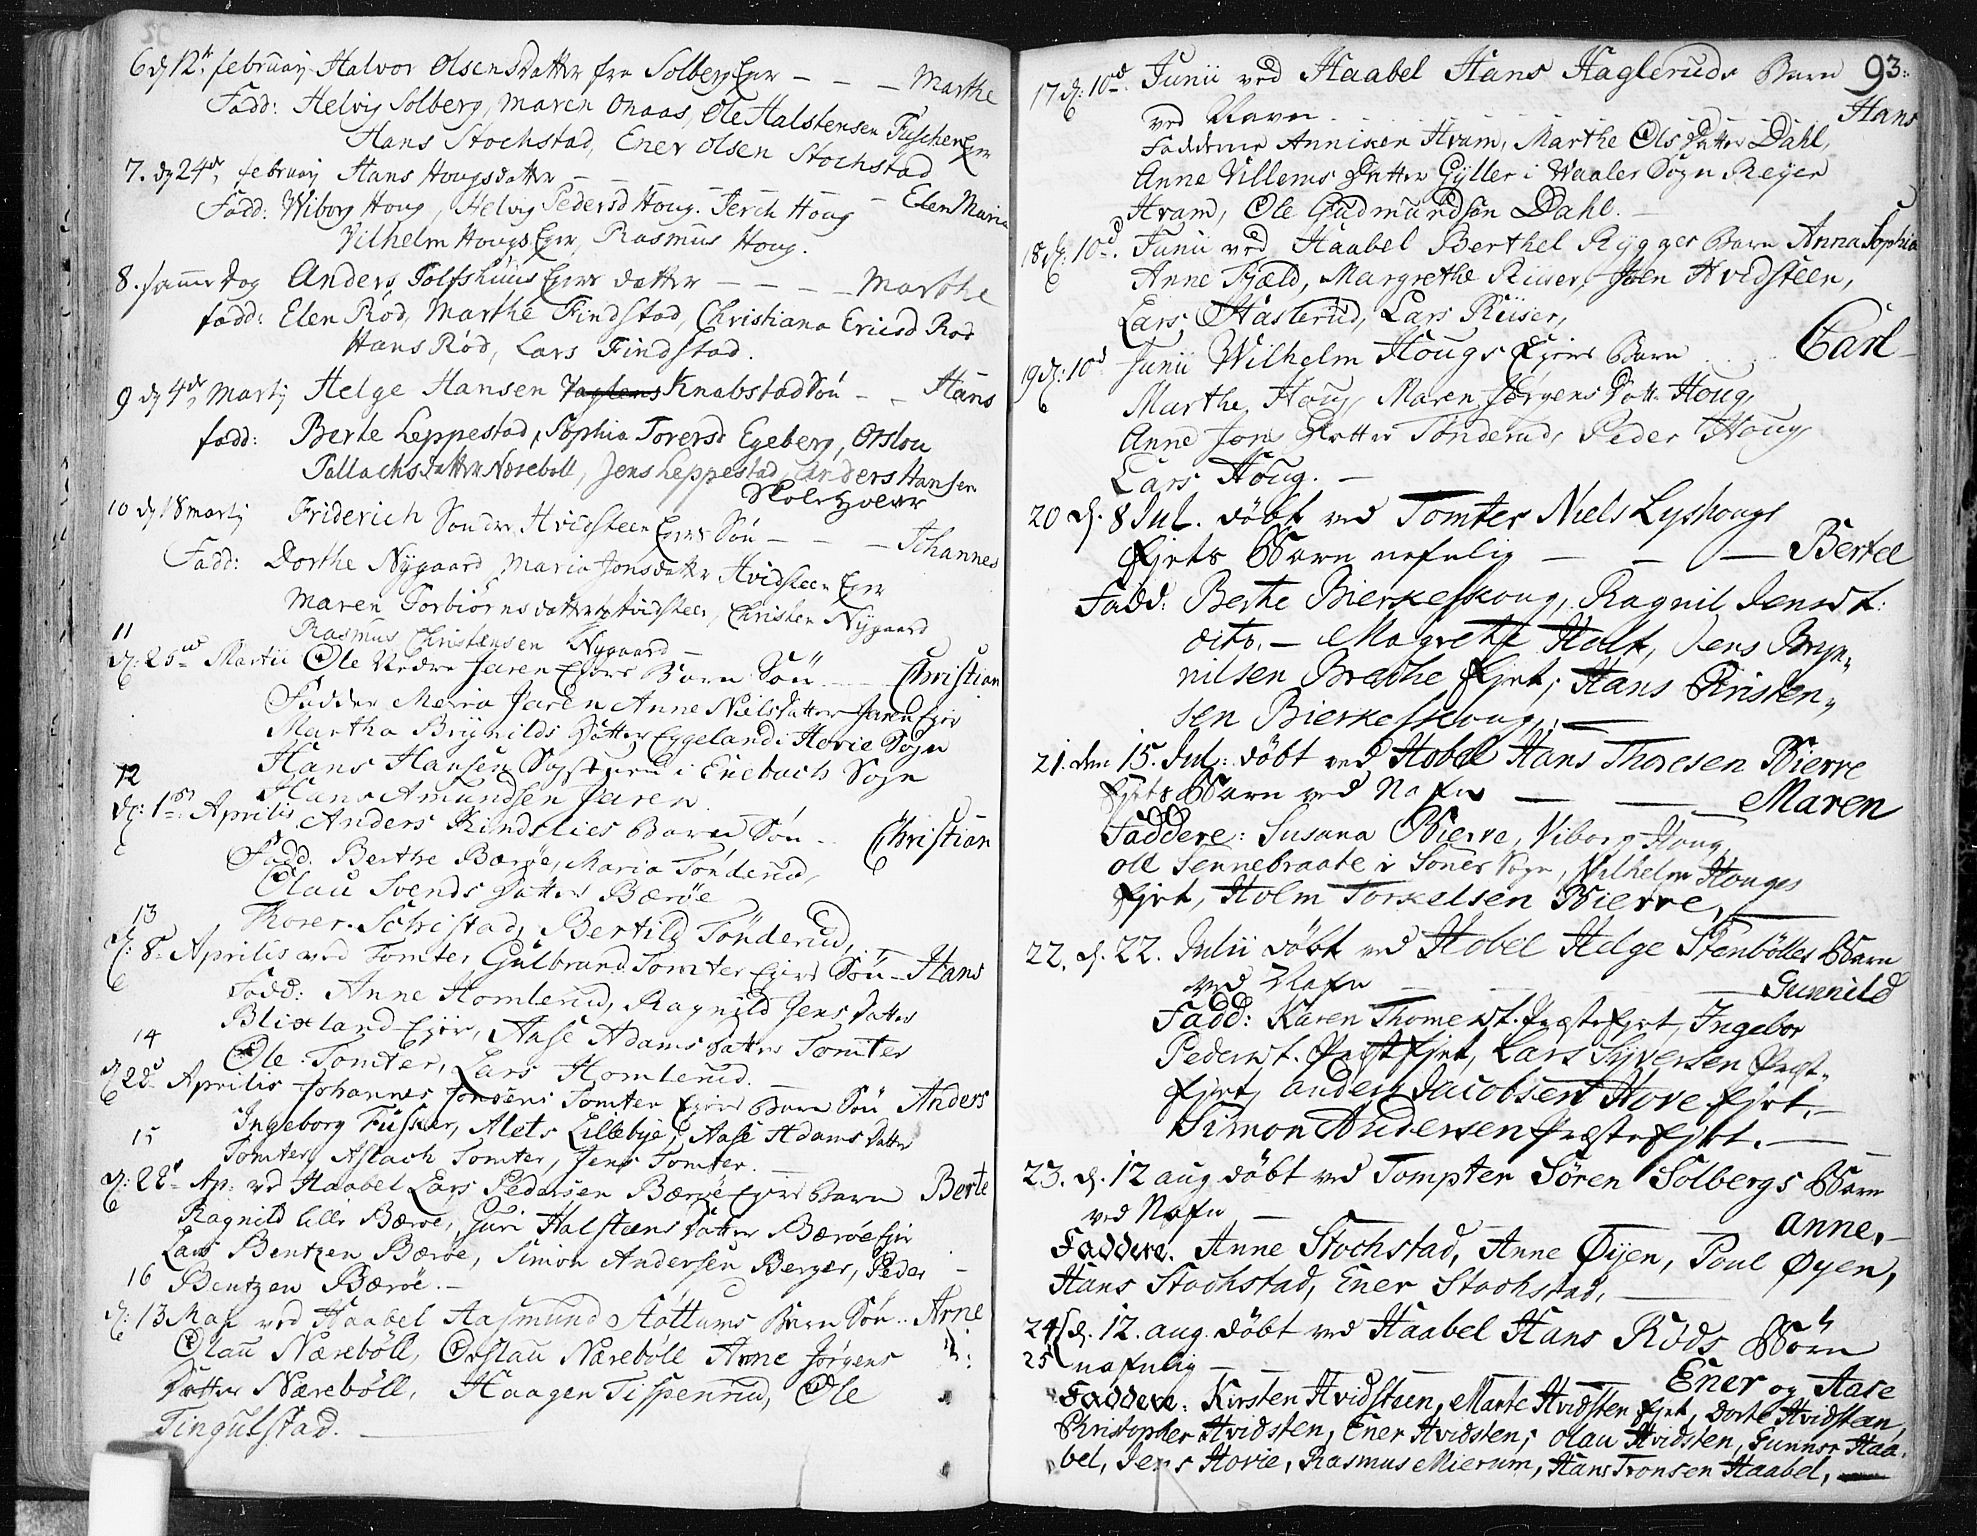 6 dȷ 12te february Halvor Olsens datter fra Solberg Eyer - - - Marthe
Fadd: Helvig Solberg, Maren Onaas, Ole Halstensen Fuscher Eyer
Hans Stochstad, Ener Olsen Stochstad
7. dȷ 24de february Hans Hougs datter - - - - Elen Maria
Fadd: Wiborg Houg, Helvig Pedersd Houg. Jerch Houg
Vilhelm Hougs Eyer, Rasmus Houg.
8. samme dag Anders Tolfshuus Eyers datter - - - - Marthe
fadd: Elen Röd, Marthe Findstad, Christiana Ericsd Röd
Hans Röd, Lars Findstad.
9 dȷ 4de Martij Helge Hansen Knabstad Sön - - Hans
fadd: Berte Leppestad, Sophia Toversd Egeberg, Orslou
Tallachs datter Næreböll, Jens Leppestad, Anders Hansen
Skoleholder
10 dȷ 18 martij Friderich Söndre Hvidsteen Eyers Sön - - - Johannes
Fadd: Dorthe Nygaard, Maria Jonsdatter Hvidsteen Eyer
Maren Torbiörns datter Hvidsteen, Christen Nygaard
Rasmus Christensen Nygaard -
11
d: 25de Martii Ole Nedre Jaren Ejers Barn Sön - - Christian
Fadder Meria Jaren Anne Niels datter Jaren Ejer
Martha Brynilds Datter Eggeland i Hovie Sogn
Hans Hansen i Enebach Sogn
Hans Amundsen Jaren.
12
d: 1ste Aprilis Anders Kindslies Barn Sön - . Christian
Fadd. Berthe Bærøe, Maria Tönderud,
Olau Svends Datter Bærøe
Thorer Schistad, Bertild Tönderud,
13
d: 8de Aprilis ved Tomter Gulbrand Tomter Ejers Sön - Hans
Fadd: Anne Homlerud, Ragnild Jens Datter
Blixland Ejer, Aase Adams Datter Tomter
Ole Tomter, Lars Homlerud.
14
d: 22de Aprilis Johannes Jonsens Tomter Ejers Barn Sön Anders
Ingeborg Fusker, Alets Lillebye, Aase Adams Datter
Tomter, Aslach Tomter, Jens Tomter. -
15
d: 22de Ap: ved Haabel Lars Pedersen Bærøe Ejers Barn Berte
Ragnild Lille Bærøe, Guri Halstens Datter Bærøe Ejer
Lars Bentzen Bærøe, Simon Andersen Berger, Peder -
Bentzen Bærøe. -
16
d: 13 Maj ved Haabel Aasmund Sottums Barn Sön . . Arne
Olau Næreböll, Orslau Næreböll Anne Jörgens
Datter Næreböll, Haagen Tispenrud, Ole
Tingulstad. -
93.
17 d: 10de. Junii ved Haabel Hans Hagleruds Barn
ved Navn . . . . . Hans
Faddere Anniken Hvam, Marthe Ols Datter Dahl,
Anne Villems Datter Gyller i Waaler Sogn Reyer
Hvam, Ole Gudmundsön Dahl. -
18 d: 10de. Junii ved Haabel Berthel Rygges Barn Anna Sophia
Anne Fjæld, Margrethe Riiser, Joen Hvidsteen,
Lars Haslerud, Lars Riiser,
19 d: 10de Junii Wilhelm Hougs Ejers Barn . . Carl
Marthe Houg, Maren Jörgens Datt. Houg,
Anne Jons Datter Tönderud, Peder Houg
Lars Houg. -
20 d. 8 Jul. döbt ved Tomter Niels Lyshougs
Ejers Barn nafnlig - - - Bertel
Fadd: Berthe Bierkeskoug, Ragnil Jensd t:
dito. - Magrethe Holt, Jens Bryn„
nilsen Brathe Ejet; Hans Kristen„
sen Bierkeskoug, -
21. den 15. Jul: döbt ved Hobel Hans Thoresen Bierre
Ejets Barn ved Nafn - - Maren
Faddere: Susana Bierre, Viborg Houg,
Ole Tennebraate i Soner Sogn, Vilhelm Houges
Ejet, Holm Torkelsen Bierre, -
22. d. 22. Julii döbt ved Hobel Helge Stenbölles Barn
ved Nafn - - - Gunnild
Fadd: Karen Thomesdt. Præste Ejet, Ingebor
Pedersdt. Præst Ejet, Lars Syversen Præst-
Ejet, Anders Jacobsen Hove Ejet. -
Simon Andersen Præste Ejet. -
23. d. 12 aug döbt ved Tompter Sören Solbergs Barn
ved Nafn - - - Anne. -
Faddere. Anne Stochstad, Anne Øyen, Poul Øyen,
Hans Stochstad, Ener Stochstad, -
24 d. 12. aug. döbt ved Haabel Hans Röds Börn
25 nafnlig - - - Ener og Aase
Faddere: Kirsten Hvidsteen, Marte Hvidsten Ejet, Dorte Hvidsten,
Kristopher Hvidsten, Ener Hvidsten; Olau Hvidsten, Gunnor Haa-
bel, Jens Hovie, Rasmus Mierum, Hans Tronsen Haabel, -